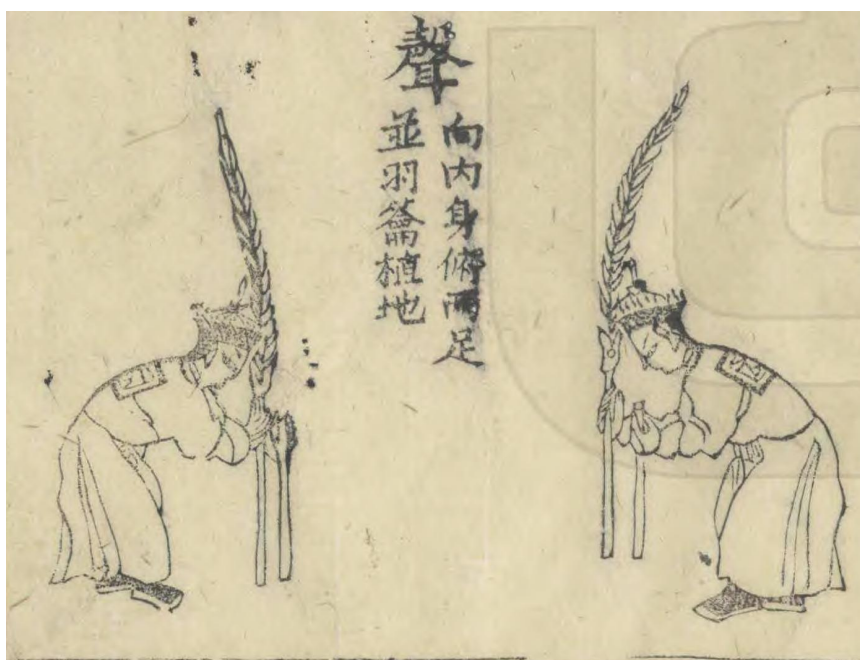 聲
向内身俯兩足
並羽籥植地